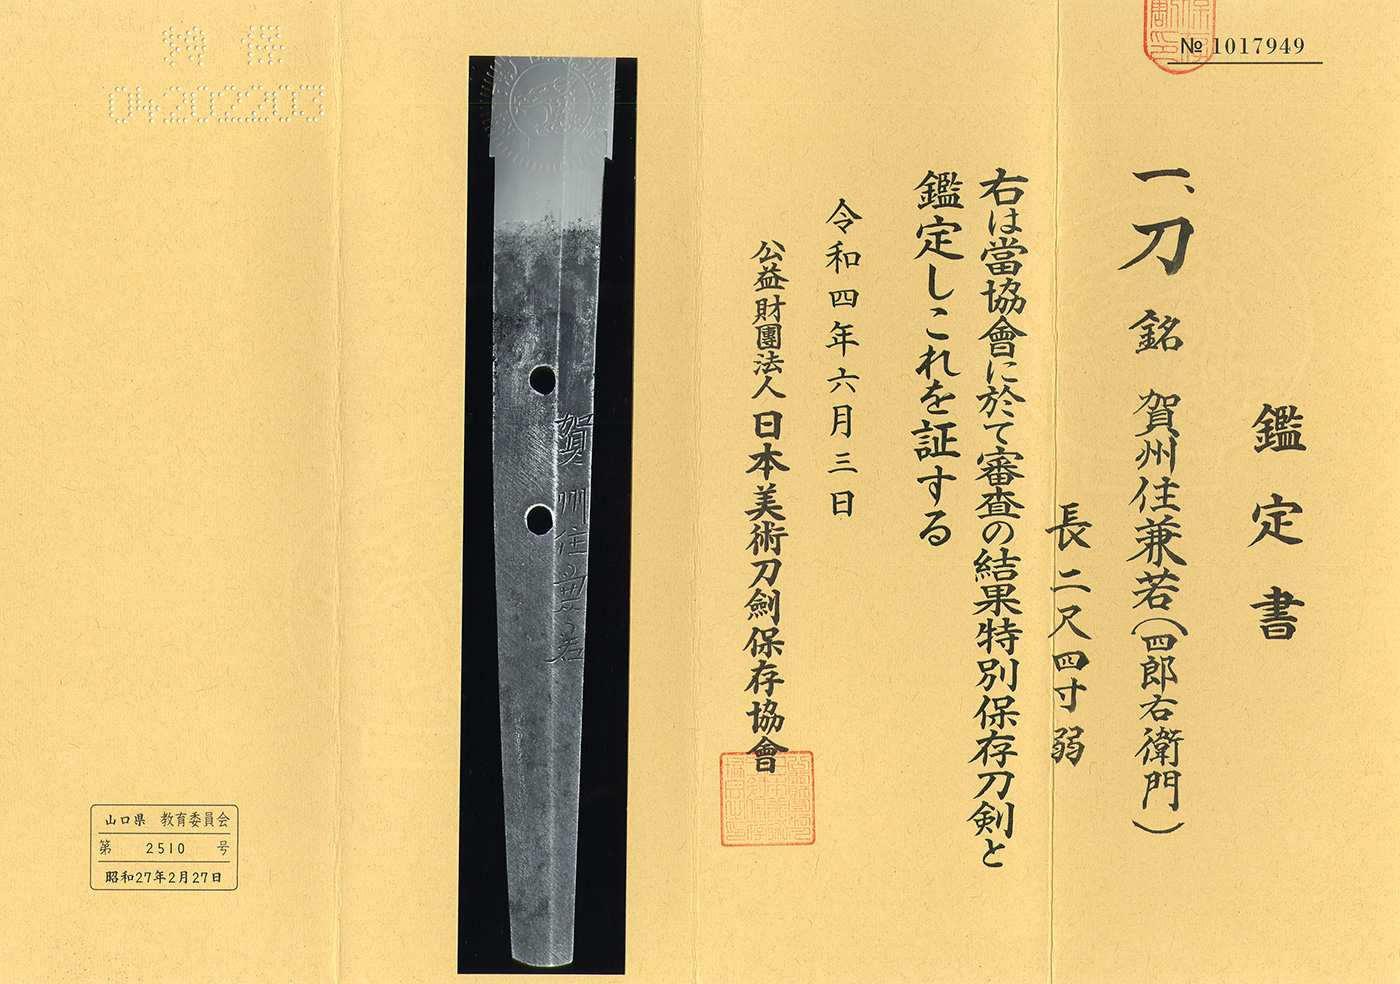 № 1017949
鑑定書
一、刀 銘 賀州住兼若(四郎右衛門)
長二尺四寸弱
右は當協會に於て審査の結果特別保存刀剣と
鑑定しこれを証する
令和四年六月三日
公益財團法人 日本美術刀劍保存協會
賀州住兼若
特保
04202203
山口県 教育委員会
第 2510 号
昭和27年2月27日